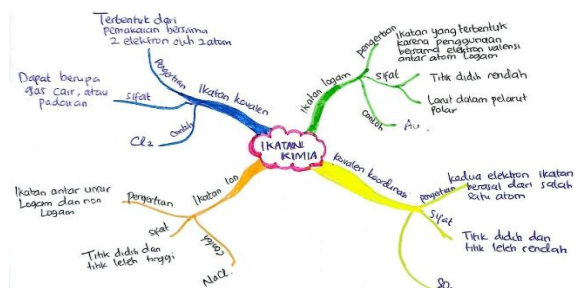 IKATAN
KIMIA
Ikatan kovalen
pengertian
Terbentuk dari
pemakaian bersama
2 elektron oleh 2 atom
sifat
Dapat berupa
gas cair, atau
padatan
Contoh
Cl2
Ikatan logam
pengertian
Ikatan yang terbentuk
karena penggunaan
bersama elektron valensi
antar atom logam
Sifat
Titik didih rendah
Larut dalam pelarut
polar
contoh
Au.
Ikatan Ion
Pengertian
Ikatan antar unsur
Logam dan non
Logam
sifat
Titik didih dan
titik leleh tinggi
Contoh
NaCl.
kovalen koordinasi
pengertian
kedua elektron ikatan
berasal dari salah
satu atom
Sifat
Titik didih dan
titik leleh rendah